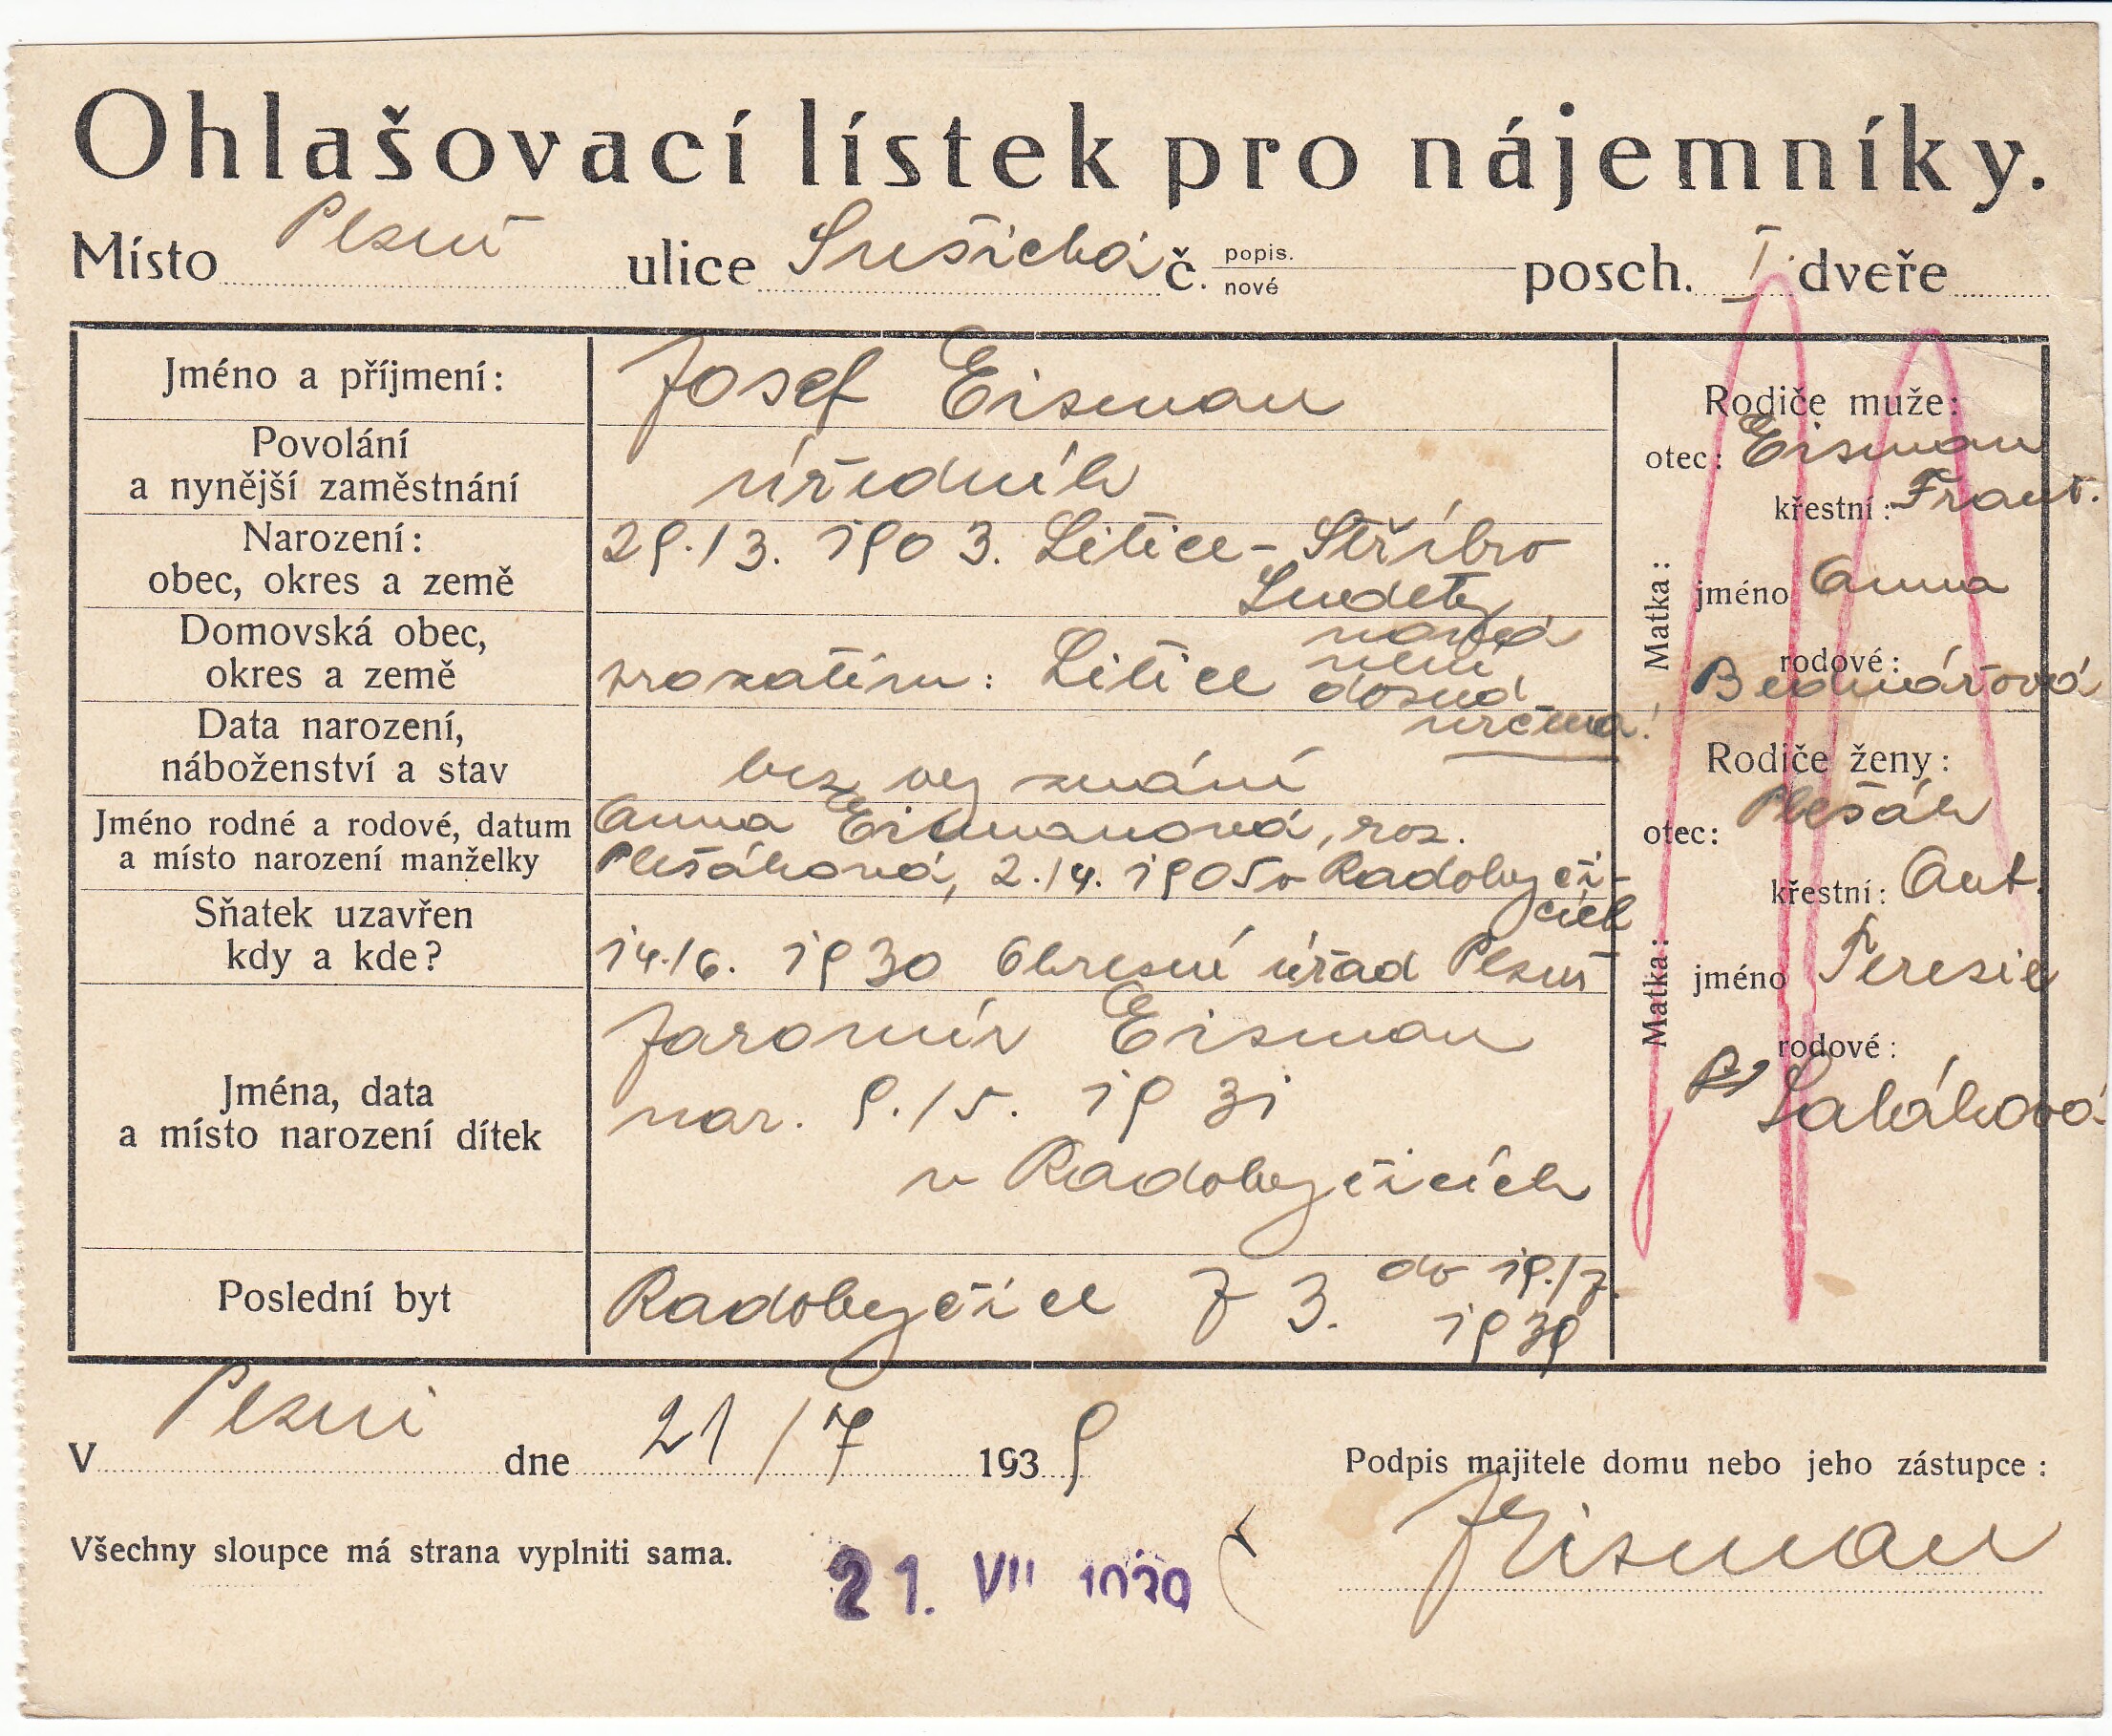 Ohlašovací lístek pro nájemníky.
Místo Plzeň ulice Sušická č. popis. nové posch. I. dveře
Jméno a příjmení: Josef Eisman
Povolání
a nynější zaměstnání úředník
Narození: 29./3. 1903. Litice - Stříbro
obec, okres a země Sudety
Domovská obec, nová
okres a země prozatím: Litice není
dosud
určena!
Data narození,
náboženství a stav bez vyznání
Jméno rodné a rodové, datum Anna Eismanová, roz.
a místo narození manželky Plešáková, 2./4. 1905 v Radobyči-
cích
Sňatek uzavřen
kdy a kde? 14./6. 1930 Okresní úřad Plzeň
Jaromír Eisman
Jména, data nar. 9./5. 1931
a místo narození dítek v Radobyčicích
Poslední byt Radobyčice 73. do 19./7.
1939
Rodiče muže:
otec: Eisman
křestní: Frant.
Matka: jméno Anna
rodové:
Bednářová
Rodiče ženy:
otec: Plešák
křestní: Ant.
Matka: jméno Terezie
rodové:
Lakáková
V Plzni dne 21/7 1939
Podpis majitele domu nebo jeho zástupce:
JEisman
Všechny sloupce má strana vyplniti sama.
21. VII 1939